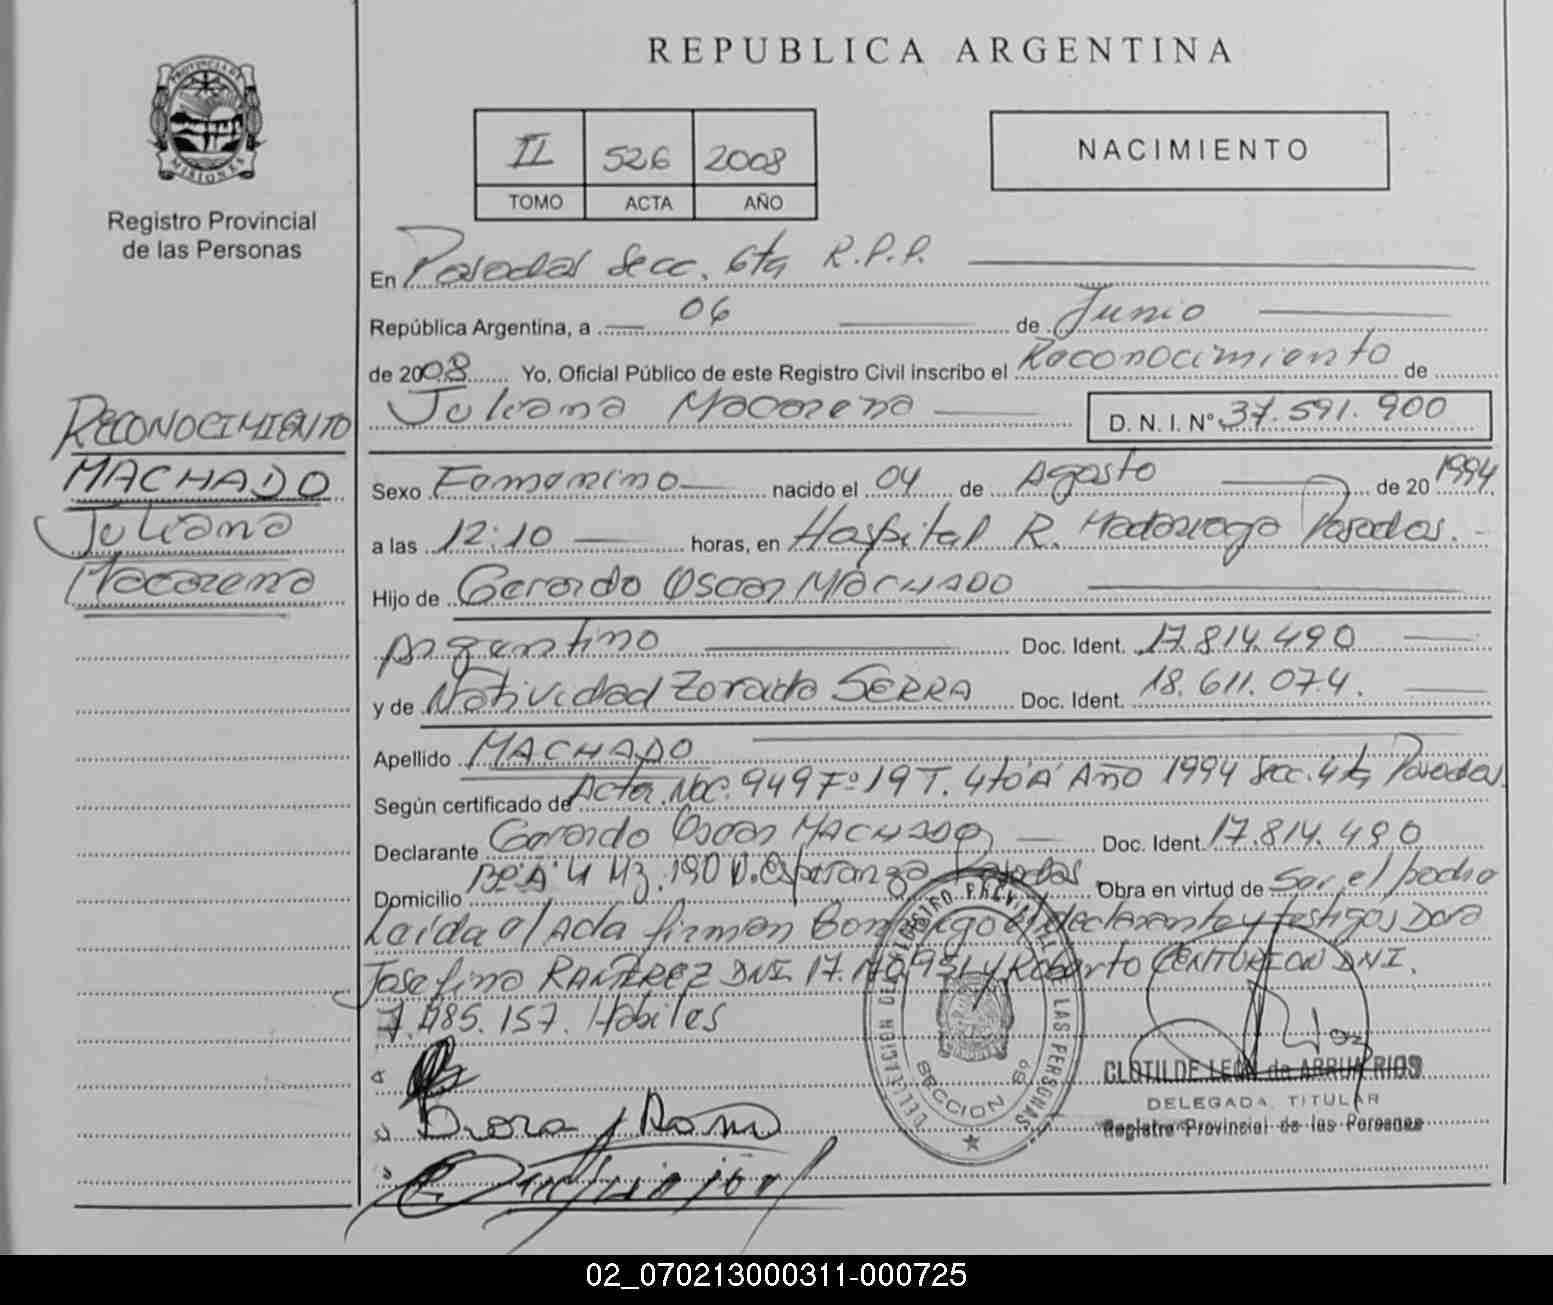 REPUBLICA ARGENTINA
PROVINCIA DE
MISIONES
Registro Provincial
de las Personas
II 526 2008
TOMO ACTA AÑO
NACIMIENTO
En Posadas Secc. 6ta R.P.P.
República Argentina, a 06 de Junio
de 2008 Yo, Oficial Público de este Registro Civil inscribo el Reconocimiento de
Juliana Macarena D. N. I. Nº 37.591.900
RECONOCIMIENTO
MACHADO
Juliana
Macarena
Sexo Femenino nacido el 04 de Agosto de 20 1994
a las 12:10 horas, en Hospital R. Madariaga Posadas.-
Hijo de Gerardo Oscar MACHADO
Argentino Doc. Ident. 17.814.490
y de Natividad Zoraida SERRA Doc. Ident. 18.611.074.
Apellido MACHADO
Según certificado de Acta Nac. 949 Fº 19 T. 4to "A" Año 1994 Secc. 4ta Posadas.
Declarante Gerardo Oscar MACHADO Doc. Ident. 17.814.490
Domicilio 4 Mz. 190 V. Esperanza Posadas. Obra en virtud de Ser el padre
Leida el Acta firman Conmigo el declarante y testigos Dora
Josefina RAMIREZ DNI. y Roberto CENTURION DNI.
7.485.157. Habiles
DELEGACION DEL REGISTRO PROVINCIAL DE LAS PERSONAS
SECCION 6º
CLOTILDE LEON de ARRUA RIOS
DELEGADA TITULAR
Registro Provincial de las Personas
02_070213000311-000725